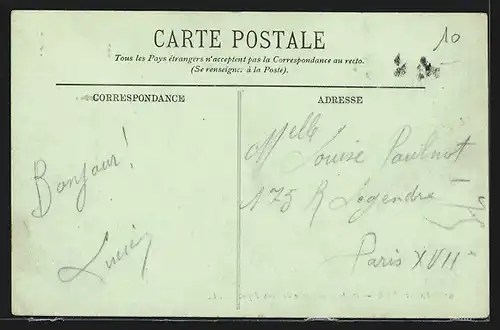 CARTE POSTALE
Tous les Pays étrangers n'acceptent pas la Correspondance au recto.
(Se renseigner à la Poste).
10
CORRESPONDANCE
Bonjour!
Lucien
ADRESSE
Melle
Louise
175 R Legendre
Paris XVII